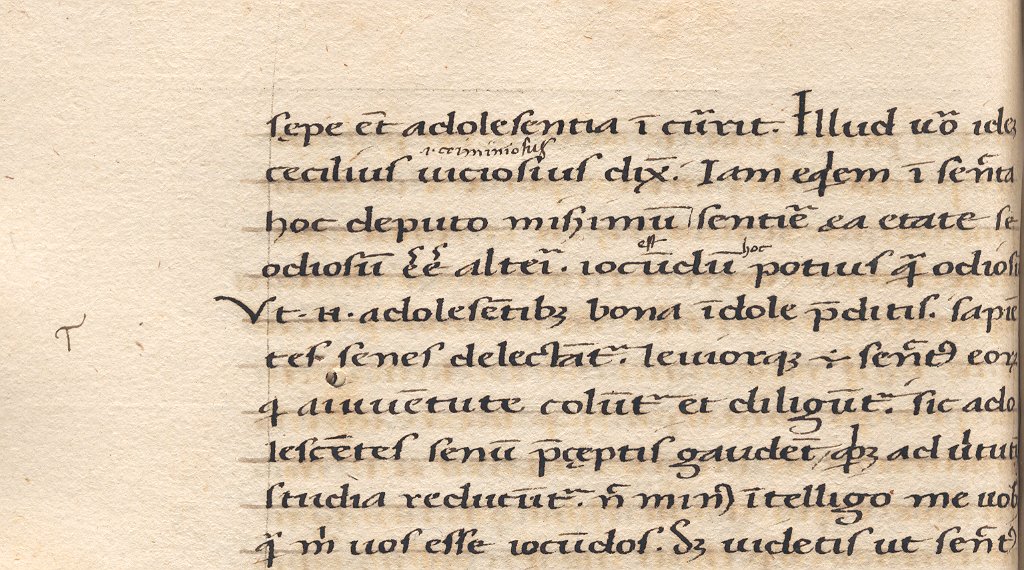 sępe et̄ adolesentia ī cūrit. Illud u͞o idez
.i. criminiosius
cecilius uiciosius dix̄. Iam eqdem ī sen̄ta
hoc deputo miserrimū sentir̄e ea etate se
est hoc
odiosū eē̄ alter̄i. iocūdū potius q̄ odiosū
Vt. n. adolesēntibꝫ bona īdole p̄ditis. sapiē
tes senes delectāt̄. leuiorqꝫ ÷ sen̄t9 eorꝝ
q aiuuētute colūt̄ et diligūt̄. sic ado
lescētes senū p̄cęptis gaudet̄, qbꝫ ad ūtutū
studia reducūt̄. n̄ min9 ītelligo me uob
q̄ m̄ uos esse iocūdos. Sꝫ uidetis ut sen̄t9
T